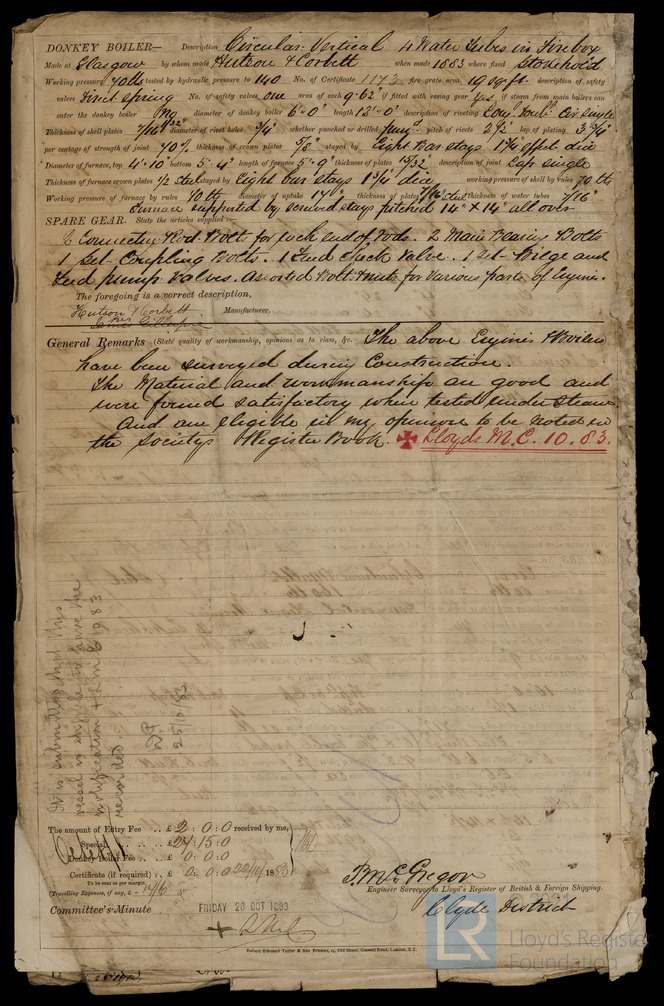 DONKEY BOILER— Description Circular. Vertical 4 Water Tubes in Firebox
Made at Glasgow by whom made Hutson & Corbett when made 1883 where fixed Stokehold
Working pressure 70 lbs tested by hydraulic pressure to 140 No. of Certificate 1173 fire grate area 19 sq ft description of safety
valves Direct spring No. of safety valves one area of each 9.62" if fitted with easing gear Yes if steam from main boilers can
enter the donkey boiler No diameter of donkey boiler 6'-0" length 12'-0" description of riveting Long. Doub. Cir single
Thickness of shell plates 7/16 diameter of rivet holes 3/4 whether punched or drilled pun. pitch of rivets 2 1/2 lap of plating 3 3/4"
per centage of strength of joint 70% thickness of crown plates stayed by Eight Bar stays 1 3/4 effect dia
Diameter of furnace, top 4'-10" bottom 5'-4" length of furnace 5'-9" thickness of plates 15/32" description of joint Lap single
Thickness of furnace crown plates 1/2 steel stayed by Eight bar stays 1 3/4" dia working pressure of shell by rules 70 lbs
Working pressure of furnace by rules diameter of uptake thickness of plates 7/16 steel thickness of water tubes 7/16"
Furnace supported by screwed stays pitched 14" x 14" all over
SPARE GEAR. State the articles supplied:—
2 Connecting Rod Bolts for each end of rods. 2 Main Bearing Bolts
1 set Coupling Bolts. 1 Feed Check Valve. 1 set Bilge and
Feed pump Valves. Assorted Bolts & nuts for various parts of Engine.
The foregoing is a correct description,
Hutson & Corbett Manufacturer.
General Remarks (State quality of workmanship, opinions as to class, &c. The above Engines & Boilers
have been surveyed during Construction.
The Material and workmanship are good and
were found satisfactory when tested under steam.
And are eligible in my opinion to be noted in
the Society's Register Book. ✠ Lloyds M.C. 10.83.
It is submitted that this
vessel is eligible to have the
notification + LMC 10.83
recorded
25/10/83
The amount of Entry Fee .. £ 2 : 0 : 0 received by me,
Special .. £ 24 : 15 : 0
Donkey Boiler Fee .. £ 0 : 0 : 0
Certificate (if required) .. £ 0 0 : 0 22/10/1883
To be sent as per margin.
(Travelling Expenses, if any, £ 14/6
P. McGregor
Engineer Surveyor to Lloyd's Register of British & Foreign Shipping.
Clyde District
Committee's Minute FRIDAY 26 OCT 1883
LR Lloyd's Register
Foundation